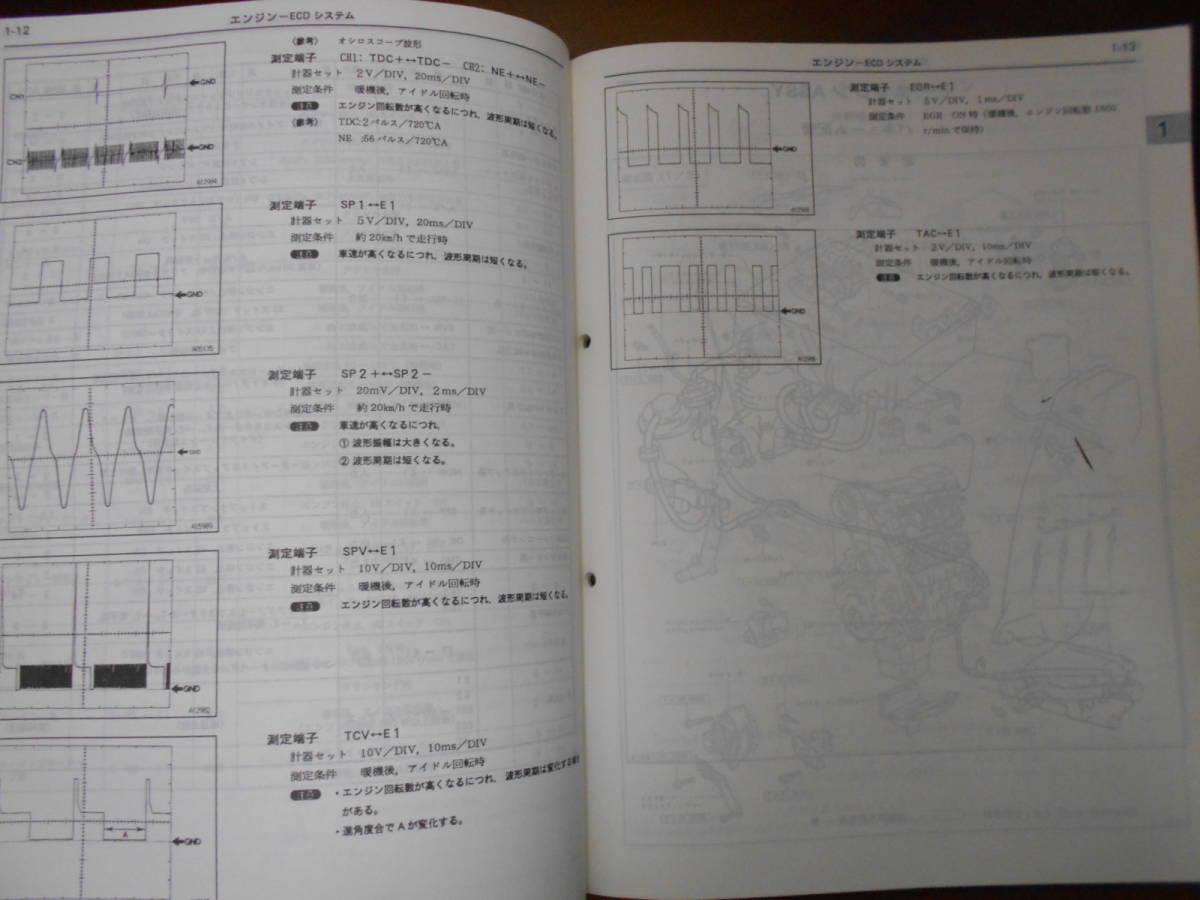 1-12
エンジン－ECD システム
〈参考〉 オシロスコープ波形
測定端子 CH1：TDC＋↔TDC－ CH2：NE＋↔NE－
計器セット 2V／DIV，20ms／DIV
測定条件 暖機後，アイドル回転時
注意 エンジン回転数が高くなるにつれ，波形周期は短くなる。
〈参考〉 TDC:2 パルス／720℃A
NE :56 パルス／720℃A
CH1
GND
CH2
GND
測定端子 SP1↔E1
計器セット 5V／DIV，20ms／DIV
測定条件 約20km/h で走行時
注意 車速が高くなるにつれ，波形周期は短くなる。
GND
測定端子 SP2＋↔SP2－
計器セット 20mV／DIV，2ms／DIV
測定条件 約20km/h で走行時
注意 車速が高くなるにつれ，
① 波形振幅は大きくなる。
② 波形周期は短くなる。
GND
測定端子 SPV↔E1
計器セット 10V／DIV，10ms／DIV
測定条件 暖機後，アイドル回転時
注意 エンジン回転数が高くなるにつれ，波形周期は短くなる。
GND
A12982
測定端子 TCV↔E1
計器セット 10V／DIV，10ms／DIV
測定条件 暖機後，アイドル回転時
注意 ・エンジン回転数が高くなるにつれ，波形周期は変化する
がある。
・進角度合でAが変化する。
A
GND
1-13
エンジン－ECD システム
1
測定端子 EGR↔E1
計器セット 5V／DIV，1ms／DIV
測定条件 EGR ON 時（暖機後，エンジン回転数
r/min で保持）
GND
測定端子 TAC↔E1
計器セット 2V／DIV，10ms／DIV
測定条件 暖機後，アイドル回転時
注意 エンジン回転数が高くなるにつれ，波形周期は短くなる。
GND